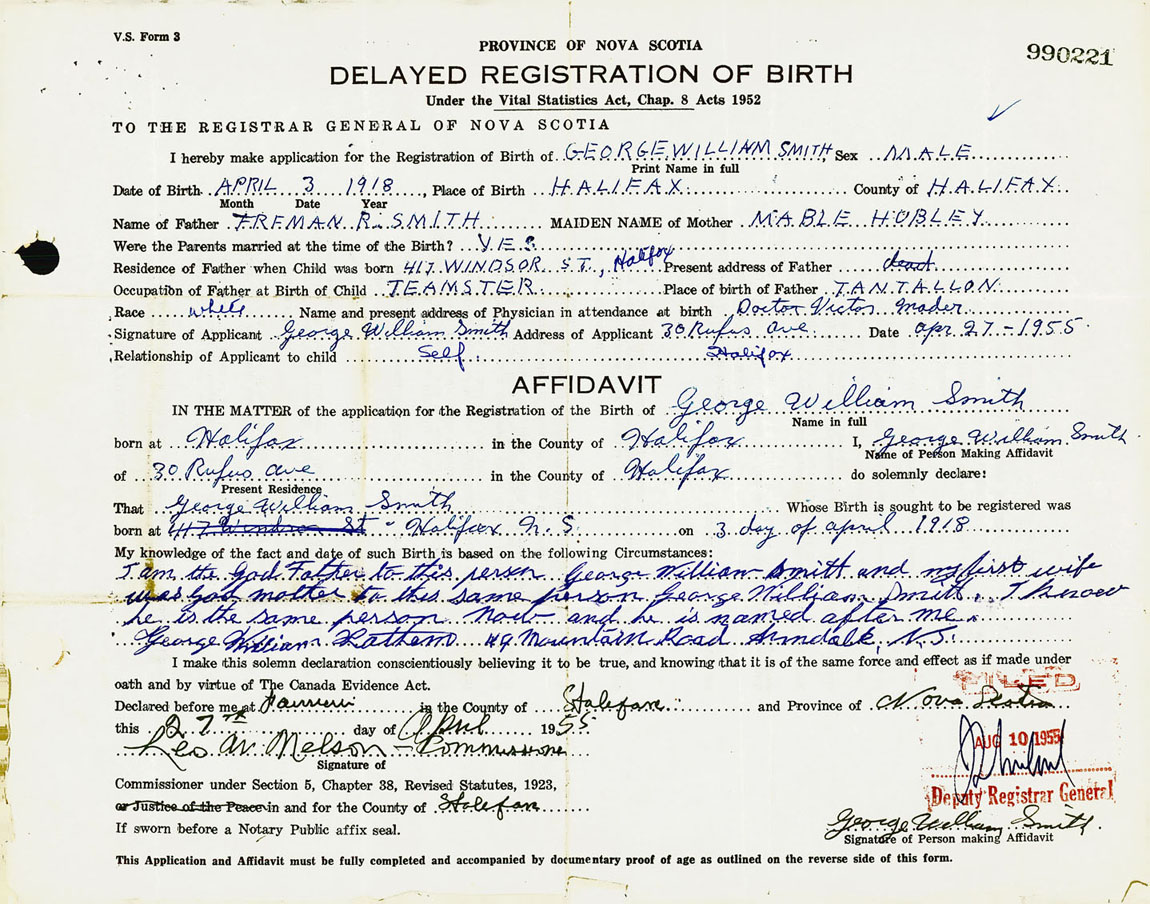 V.S. Form 3
990221
PROVINCE OF NOVA SCOTIA
DELAYED REGISTRATION OF BIRTH
Under the Vital Statistics Act, Chap. 8 Acts 1952
TO THE REGISTRAR GENERAL OF NOVA SCOTIA
I hereby make application for the Registration of Birth of GEORGE WILLIAM SMITH Sex MALE
Print Name in full
Date of Birth APRIL 3 1918, Place of Birth HALIFAX County of HALIFAX
Month Date Year
Name of Father FREMAN R. SMITH MAIDEN NAME of Mother MABLE HOBLEY
Were the Parents married at the time of the Birth? YES
Residence of Father when Child was born 417 WINDSOR ST., Halifax Present address of Father dead
Occupation of Father at Birth of Child TEAMSTER Place of birth of Father TANTALLON
Race white Name and present address of Physician in attendance at birth Doctor Victor Mader
Signature of Applicant George William Smith Address of Applicant 30 Rufus Ave Date Apr 27 - 1955
Relationship of Applicant to child Self Halifax
AFFIDAVIT
IN THE MATTER of the application for the Registration of the Birth of George William Smith
Name in full
born at Halifax in the County of Halifax I, George William Smith
Name of Person Making Affidavit
of 30 Rufus Ave in the County of Halifax do solemnly declare:
Present Residence
That George William Smith Whose Birth is sought to be registered was
born at 417 Windsor St - Halifax N.S. on 3 day of April 1918
My knowledge of the fact and date of such Birth is based on the following Circumstances:
I am the God Father to this person George William Smith and my first wife
was God mother to this same person George William Smith. I know
he is the same person now and he is named after me.
George William 49 Mountain Road Armdale, N.S.
I make this solemn declaration conscientiously believing it to be true, and knowing that it is of the same force and effect as if made under
oath and by virtue of The Canada Evidence Act.
FILED
Declared before me at in the County of Halifax and Province of Nova Scotia
this 27th day of April 1955
AUG 10 1955
Leo W. Melson - Commissioner
Signature of
Commissioner under Section 5, Chapter 38, Revised Statutes, 1923,
Deputy Registrar General
or Justice of the Peace in and for the County of Halifax
George William Smith
If sworn before a Notary Public affix seal.
Signature of Person making Affidavit
This Application and Affidavit must be fully completed and accompanied by documentary proof of age as outlined on the reverse side of this form.